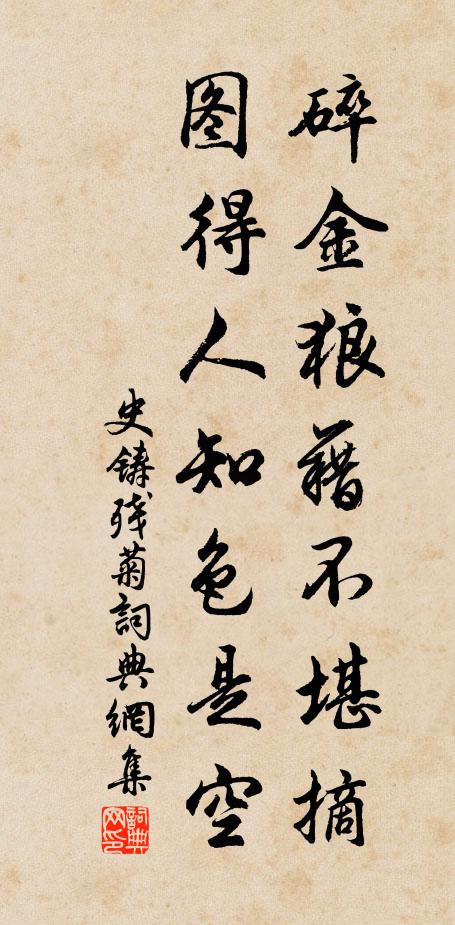 碎金狼藉不堪摘
图得人知色是空
史铸残菊詞典網集
詞典网印